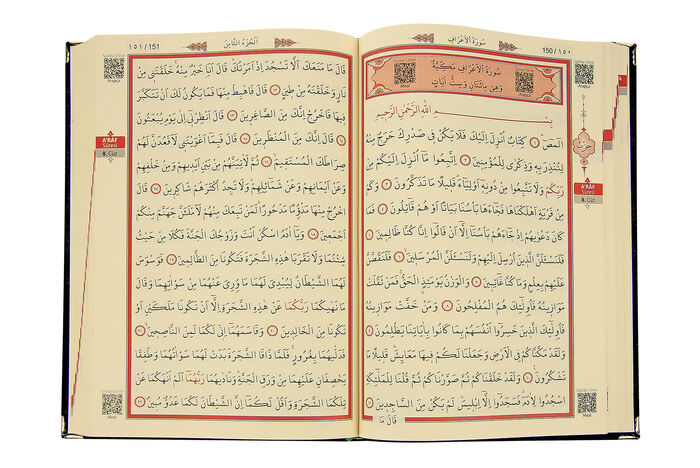 ١٥٠ / 150
سُورَةُ الْاَعْرَافِ
Meal
Arapça
سُورَةُ الْاَعْرَافِ مَكِّيَّةٌ
وَهِيَ مِائَتَانِ وَسِتُّ اٰيَاتٍ
بِسْمِ اللّٰهِ الرَّحْمٰنِ الرَّحِيمِ
الٓمٓصٓ ١ كِتَابٌ اُنْزِلَ اِلَيْكَ فَلَا يَكُنْ فِى صَدْرِكَ حَرَجٌ مِنْهُ
لِتُنْذِرَ بِهِ وَذِكْرٰى لِلْمُؤْمِنِينَ ٢ اِتَّبِعُوا مَٓا اُنْزِلَ اِلَيْكُمْ مِنْ
رَبِّكُمْ وَلَا تَتَّبِعُوا مِنْ دُونِهِٓ اَوْلِيَٓاءَ قَلِيلًا مَا تَذَكَّرُونَ ٣ وَكَمْ
مِنْ قَرْيَةٍ اَهْلَكْنَاهَا فَجَٓاءَهَا بَأْسُنَا بَيَاتًا اَوْ هُمْ قَٓائِلُونَ ٤ فَمَا
كَانَ دَعْوٰيهُمْ اِذْ جَٓاءَهُمْ بَأْسُنَٓا اِلَّٓا اَنْ قَالُٓوا اِنَّا كُنَّا ظَالِمِينَ ٥
فَلَنَسْـَٔلَنَّ الَّذِينَ اُرْسِلَ اِلَيْهِمْ وَلَنَسْـَٔلَنَّ الْمُرْسَلِينَ ٦ فَلَنَقُصَّنَّ
عَلَيْهِمْ بِعِلْمٍ وَمَا كُنَّا غَٓائِبِينَ ٧ وَالْوَزْنُ يَوْمَئِذٍ الْحَقُّ فَمَنْ ثَقُلَتْ
مَوَازِينُهُ فَاُولٰٓئِكَ هُمُ الْمُفْلِحُونَ ٨ وَمَنْ خَفَّتْ مَوَازِينُهُ
فَاُولٰٓئِكَ الَّذِينَ خَسِرُٓوا اَنْفُسَهُمْ بِمَا كَانُوا بِاٰيَاتِنَا يَظْلِمُونَ ٩
وَلَقَدْ مَكَّنَّاكُمْ فِى الْاَرْضِ وَجَعَلْنَا لَكُمْ فِيهَا مَعَايِشَ قَلِيلًا مَا
تَشْكُرُونَ ١٠ وَلَقَدْ خَلَقْنَاكُمْ ثُمَّ صَوَّرْنَاكُمْ ثُمَّ قُلْنَا لِلْمَلٰٓئِكَةِ
اسْجُدُوا لِاٰدَمَ فَسَجَدُٓوا اِلَّٓا اِبْلِيسَ لَمْ يَكُنْ مِنَ السَّاجِدِينَ ١١
قَالَ مَا
حزب
A'RÂF
Sûresi
8. Cüz
Arapça
Meal
اَلْجُزْءُ الثَّامِنُ
١٥١ / 151
قَالَ مَا مَنَعَكَ اَلَّا تَسْجُدَ اِذْ اَمَرْتُكَ قَالَ اَنَا۬ خَيْرٌ مِنْهُ خَلَقْتَنِى مِنْ
نَارٍ وَخَلَقْتَهُ مِنْ طِينٍ ١٢ قَالَ فَاهْبِطْ مِنْهَا فَمَا يَكُونُ لَكَ اَنْ تَتَكَبَّرَ
فِيهَا فَاخْرُجْ اِنَّكَ مِنَ الصَّاغِرِينَ ١٣ قَالَ اَنْظِرْنِٓى اِلٰى يَوْمِ يُبْعَثُونَ
١٤ قَالَ اِنَّكَ مِنَ الْمُنْظَرِينَ ١٥ قَالَ فَبِمَٓا اَغْوَيْتَنِى لَاَقْعُدَنَّ لَهُمْ
صِرَاطَكَ الْمُسْتَقِيمَ ١٦ ثُمَّ لَاٰتِيَنَّهُمْ مِنْ بَيْنِ اَيْدِيهِمْ وَمِنْ خَلْفِهِمْ
وَعَنْ اَيْمَانِهِمْ وَعَنْ شَمَٓائِلِهِمْ وَلَا تَجِدُ اَكْثَرَهُمْ شَاكِرِينَ ١٧ قَالَ
اخْرُجْ مِنْهَا مَذْؤُ۫مًا مَدْحُورًا لَمَنْ تَبِعَكَ مِنْهُمْ لَاَمْلَـَٔنَّ جَهَنَّمَ مِنْكُمْ
اَجْمَعِينَ ١٨ وَيَٓا اٰدَمُ اسْكُنْ اَنْتَ وَزَوْجُكَ الْجَنَّةَ فَكُلَا مِنْ حَيْثُ
شِئْتُمَا وَلَا تَقْرَبَا هٰذِهِ الشَّجَرَةَ فَتَكُونَا مِنَ الظَّالِمِينَ ١٩ فَوَسْوَسَ
لَهُمَا الشَّيْطَانُ لِيُبْدِىَ لَهُمَا مَا وُ۫رِىَ عَنْهُمَا مِنْ سَوْاٰتِهِمَا وَقَالَ
مَا نَهٰيكُمَا رَبُّكُمَا عَنْ هٰذِهِ الشَّجَرَةِ اِلَّٓا اَنْ تَكُونَا مَلَكَيْنِ اَوْ
تَكُونَا مِنَ الْخَالِدِينَ ٢٠ وَقَاسَمَهُمَٓا اِنِّى لَكُمَا لَمِنَ النَّاصِحِينَ ٢١
فَدَلّٰيهُمَا بِغُرُورٍ فَلَمَّا ذَاقَا الشَّجَرَةَ بَدَتْ لَهُمَا سَوْاٰتُهُمَا وَطَفِقَا
يَخْصِفَانِ عَلَيْهِمَا مِنْ وَرَقِ الْجَنَّةِ وَنَادٰيهُمَا رَبُّهُمَٓا اَلَمْ اَنْهَكُمَا عَنْ
تِلْكُمَا الشَّجَرَةِ وَاَقُلْ لَكُمَٓا اِنَّ الشَّيْطَانَ لَكُمَا عَدُوٌّ مُبِينٌ ٢٢
Arapça
A'RÂF
Sûresi
8. Cüz
Meal